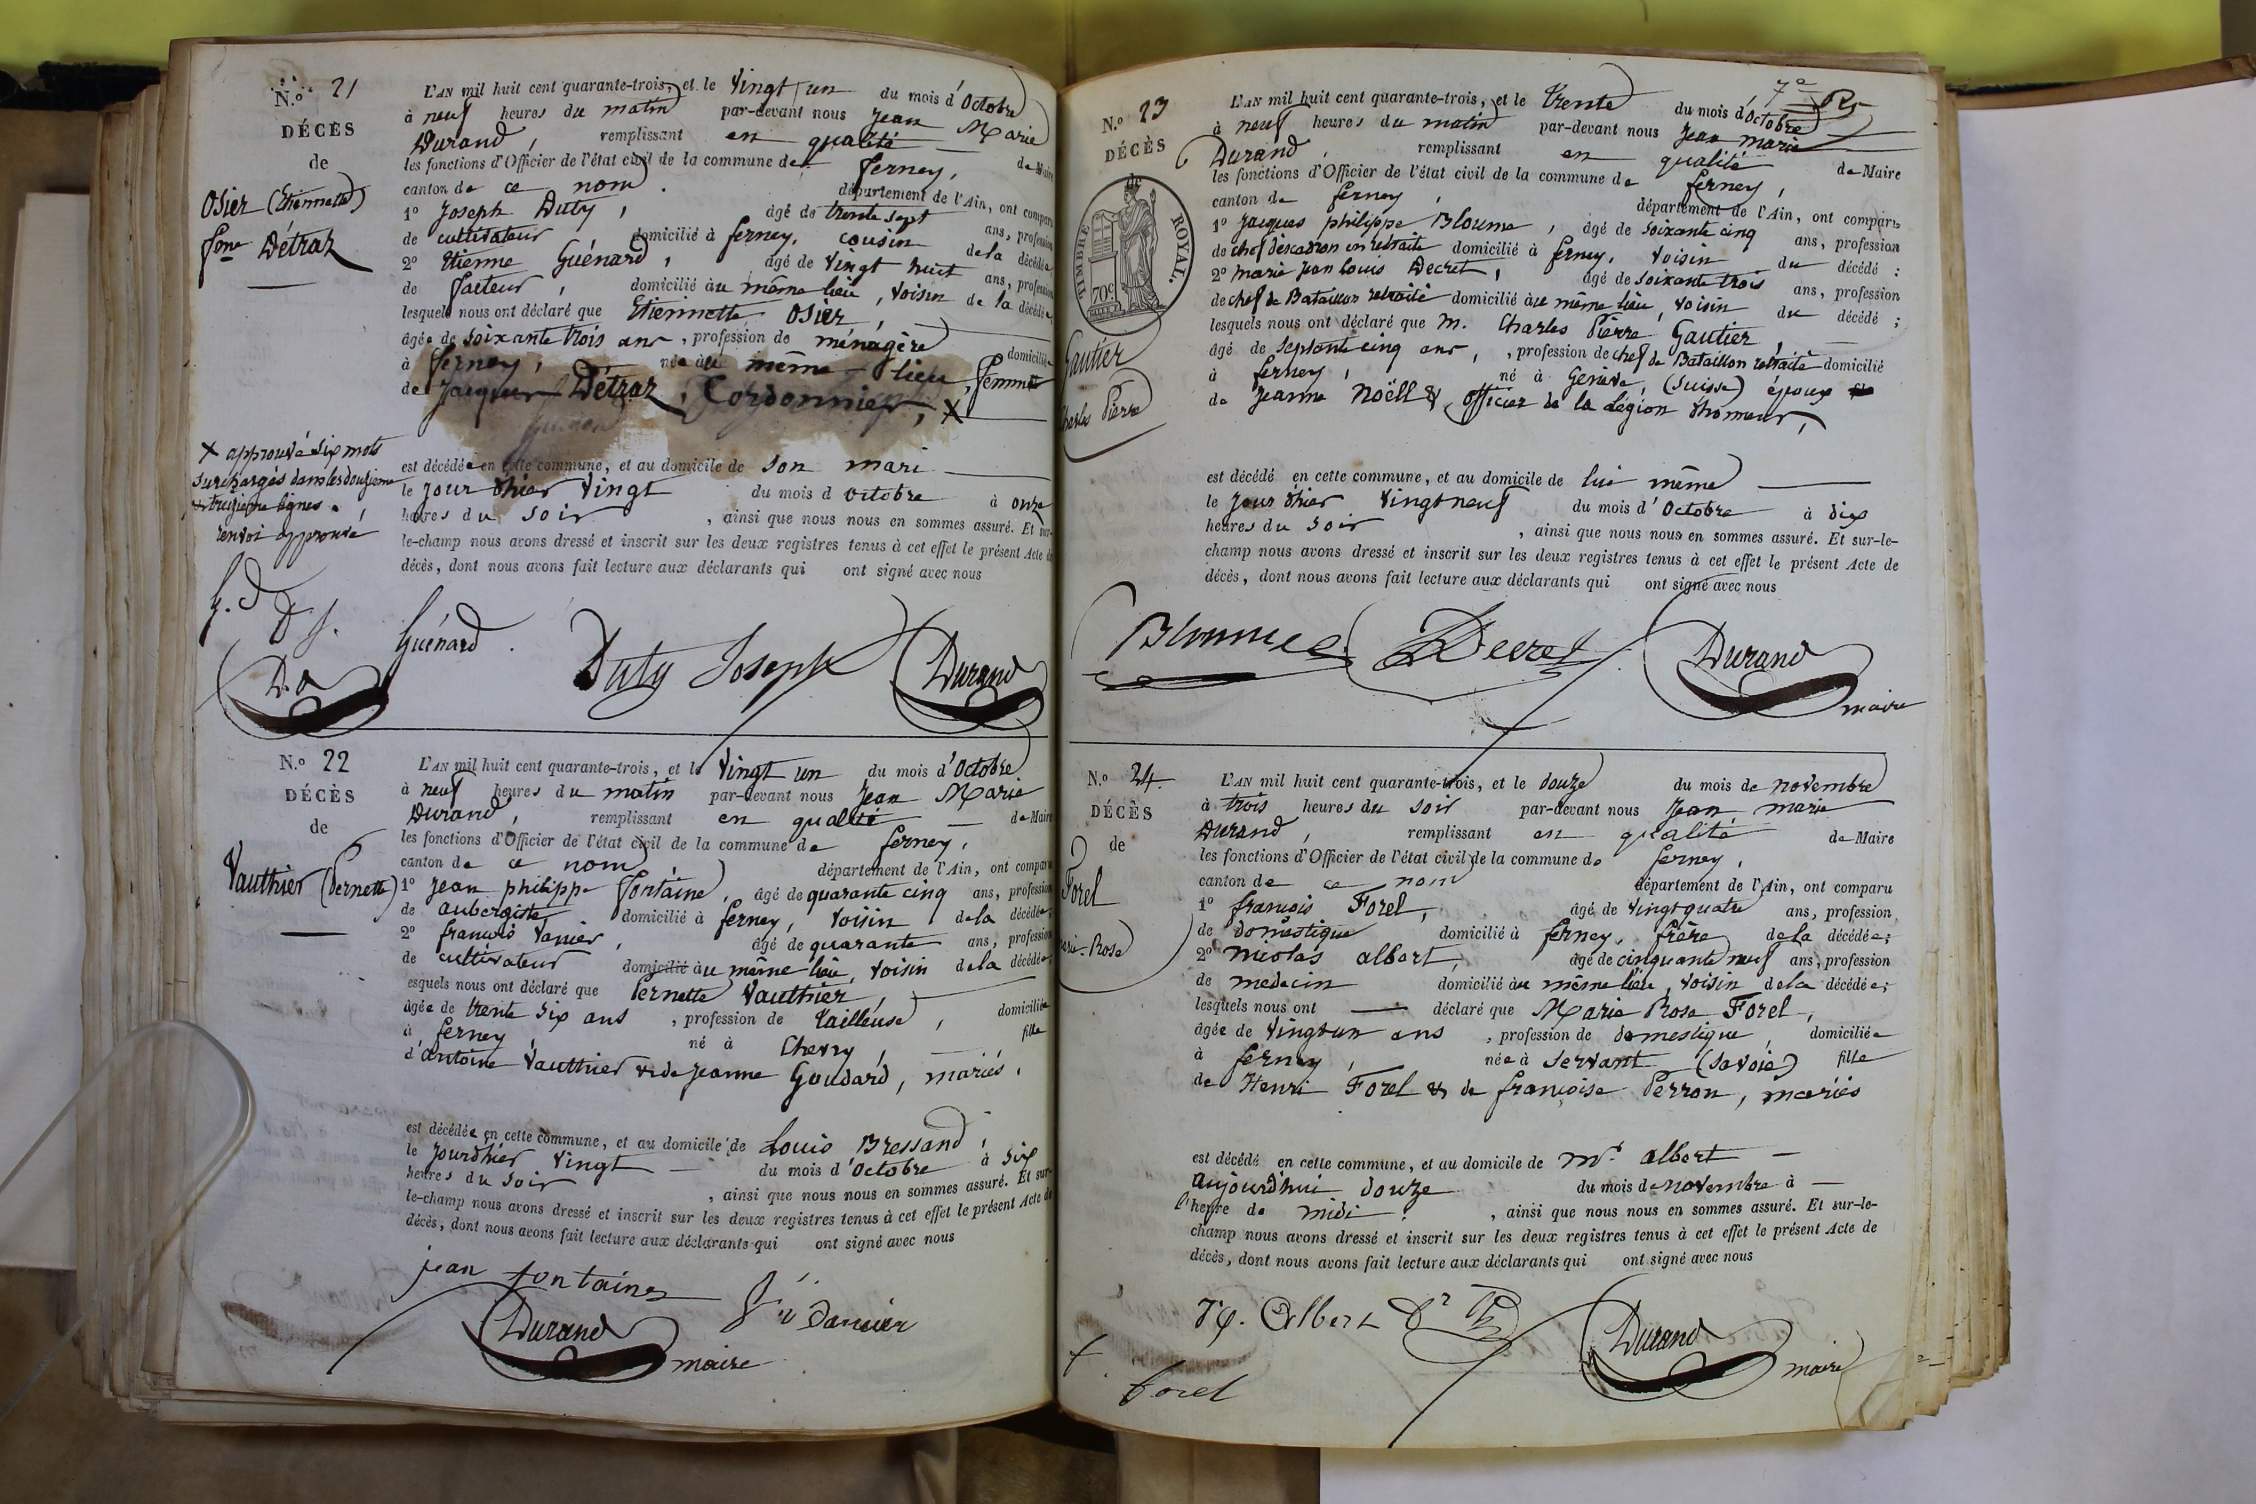 N.o 21
DÉCÈS
de
Osier (Etiennette)
fme Détraz
L'AN mil huit cent quarante-trois, et le vingt un du mois d'Octobre
à neuf heures du matin par-devant nous Jean Marie
Durand, remplissant en qualité de Maire
les fonctions d'Officier de l'état civil de la commune de ferney,
canton de ce nom. département de l'Ain, ont comparu
1o Joseph Duty, âgé de trente sept ans, profession
de cultivateur domicilié à ferney, cousin de la décédée;
2o Etienne Guénard, âgé de vingt huit ans, profession
de facteur, domicilié au même lieu, voisin de la décédée;
lesquels nous ont déclaré que Etiennette Osier,
âgée de soixante trois ans, profession de ménagère domiciliée
à ferney, née au même lieu, femme
de Jacques Détraz, Cordonnier, X
X approuvé six mots
surchargés dans les douzième
et treizième lignes.
renvoi approuvé
est décédée en cette commune, et au domicile de son mari
le jour d'hier vingt du mois d octobre à onze
heures du soir, ainsi que nous nous en sommes assuré. Et sur-
le-champ nous avons dressé et inscrit sur les deux registres tenus à cet effet le présent Acte de
décès, dont nous avons fait lecture aux déclarants qui ont signé avec nous
G. d D J.
D.d Guénard. Duty Joseph Durand
N.o 22
DÉCÈS
de
Vauthier (Pernette)
L'AN mil huit cent quarante-trois, et le vingt un du mois d'Octobre
à neuf heures du matin par-devant nous Jean Marie
Durand, remplissant en qualité de Maire
les fonctions d'Officier de l'état civil de la commune de ferney,
canton de ce nom département de l'Ain, ont comparu
1o Jean philippe fontaine, âgé de quarante cinq ans, profession
de aubergiste domicilié à ferney, voisin de la décédée;
2o françois Vanier, âgé de quarante ans, profession
de cultivateur domicilié au même lieu, voisin de la décédée;
esquels nous ont déclaré que Pernette Vauthier,
âgée de trente six ans, profession de tailleuse, domiciliée
à ferney, né à Chevry, fille
d'antoine Vauthier & de Jeanne Goudard, mariés,
est décédée en cette commune, et au domicile de Louis Bressand,
le jour d'hier vingt du mois d'Octobre à six
heures du soir, ainsi que nous nous en sommes assuré. Et sur-
le-champ nous avons dressé et inscrit sur les deux registres tenus à cet effet le présent Acte de
décès, dont nous avons fait lecture aux déclarants qui ont signé avec nous
jean fontaine
Durand maire
N.o 23
DÉCÈS
de
TIMBRE ROYAL.
70c
Gautier
Charles Pierre
L'AN mil huit cent quarante-trois, et le trente du mois d'Octobre
à neuf heures du matin par-devant nous Jean marie
Durand, remplissant en qualité de Maire
les fonctions d'Officier de l'état civil de la commune de ferney,
canton de ferney, département de l'Ain, ont comparu
1o Jacques philippe Bloume, âgé de soixante cinq ans, profession
de chef d'escadron en retraite domicilié à ferney, voisin du décédé;
2o marie jean louis Decret, âgé de soixante trois ans, profession
de chef de Bataillon retraité domicilié au même lieu, voisin du décédé;
lesquels nous ont déclaré que m. Charles Pierre Gautier,
âgé de septante cinq ans, profession de chef de Bataillon retraité domicilié
à ferney, né à Genève, (suisse) époux
de Jeanne Noëll & officier de la Légion d'honneur,
est décédé en cette commune, et au domicile de lui même
le jour d'hier vingt neuf du mois d'Octobre à dix
heures du soir, ainsi que nous nous en sommes assuré. Et sur-le-
champ nous avons dressé et inscrit sur les deux registres tenus à cet effet le présent Acte de
décès, dont nous avons fait lecture aux déclarants qui ont signé avec nous
Bloume Decret Durand
maire
N.o 24.
DÉCÈS
de
Forel
arie-Rose
L'AN mil huit cent quarante-trois, et le douze du mois de novembre
à trois heures du soir par-devant nous Jean marie
Durand, remplissant en qualité de Maire
les fonctions d'Officier de l'état civil de la commune de ferney,
canton de ce nom département de l'Ain, ont comparu
1o françois Forel, âgé de vingt quatre ans, profession
de domestique domicilié à ferney, frère de la décédée;
2o nicolas albert, âgé de cinquante neuf ans, profession
de medecin domicilié au même lieu, voisin de la décédée;
lesquels nous ont déclaré que Marie Rose Forel,
âgée de vingt un ans, profession de domestique, domiciliée
à ferney, née à Servant (Savoie) fille
de Henri Forel & de françoise Perron, mariés
est décédé en cette commune, et au domicile de Mr. albert
aujourd'hui douze du mois de novembre à
l'heure de midi, ainsi que nous nous en sommes assuré. Et sur-le-
champ nous avons dressé et inscrit sur les deux registres tenus à cet effet le présent Acte de
décès, dont nous avons fait lecture aux déclarants qui ont signé avec nous
Albert Durand
maire
forel